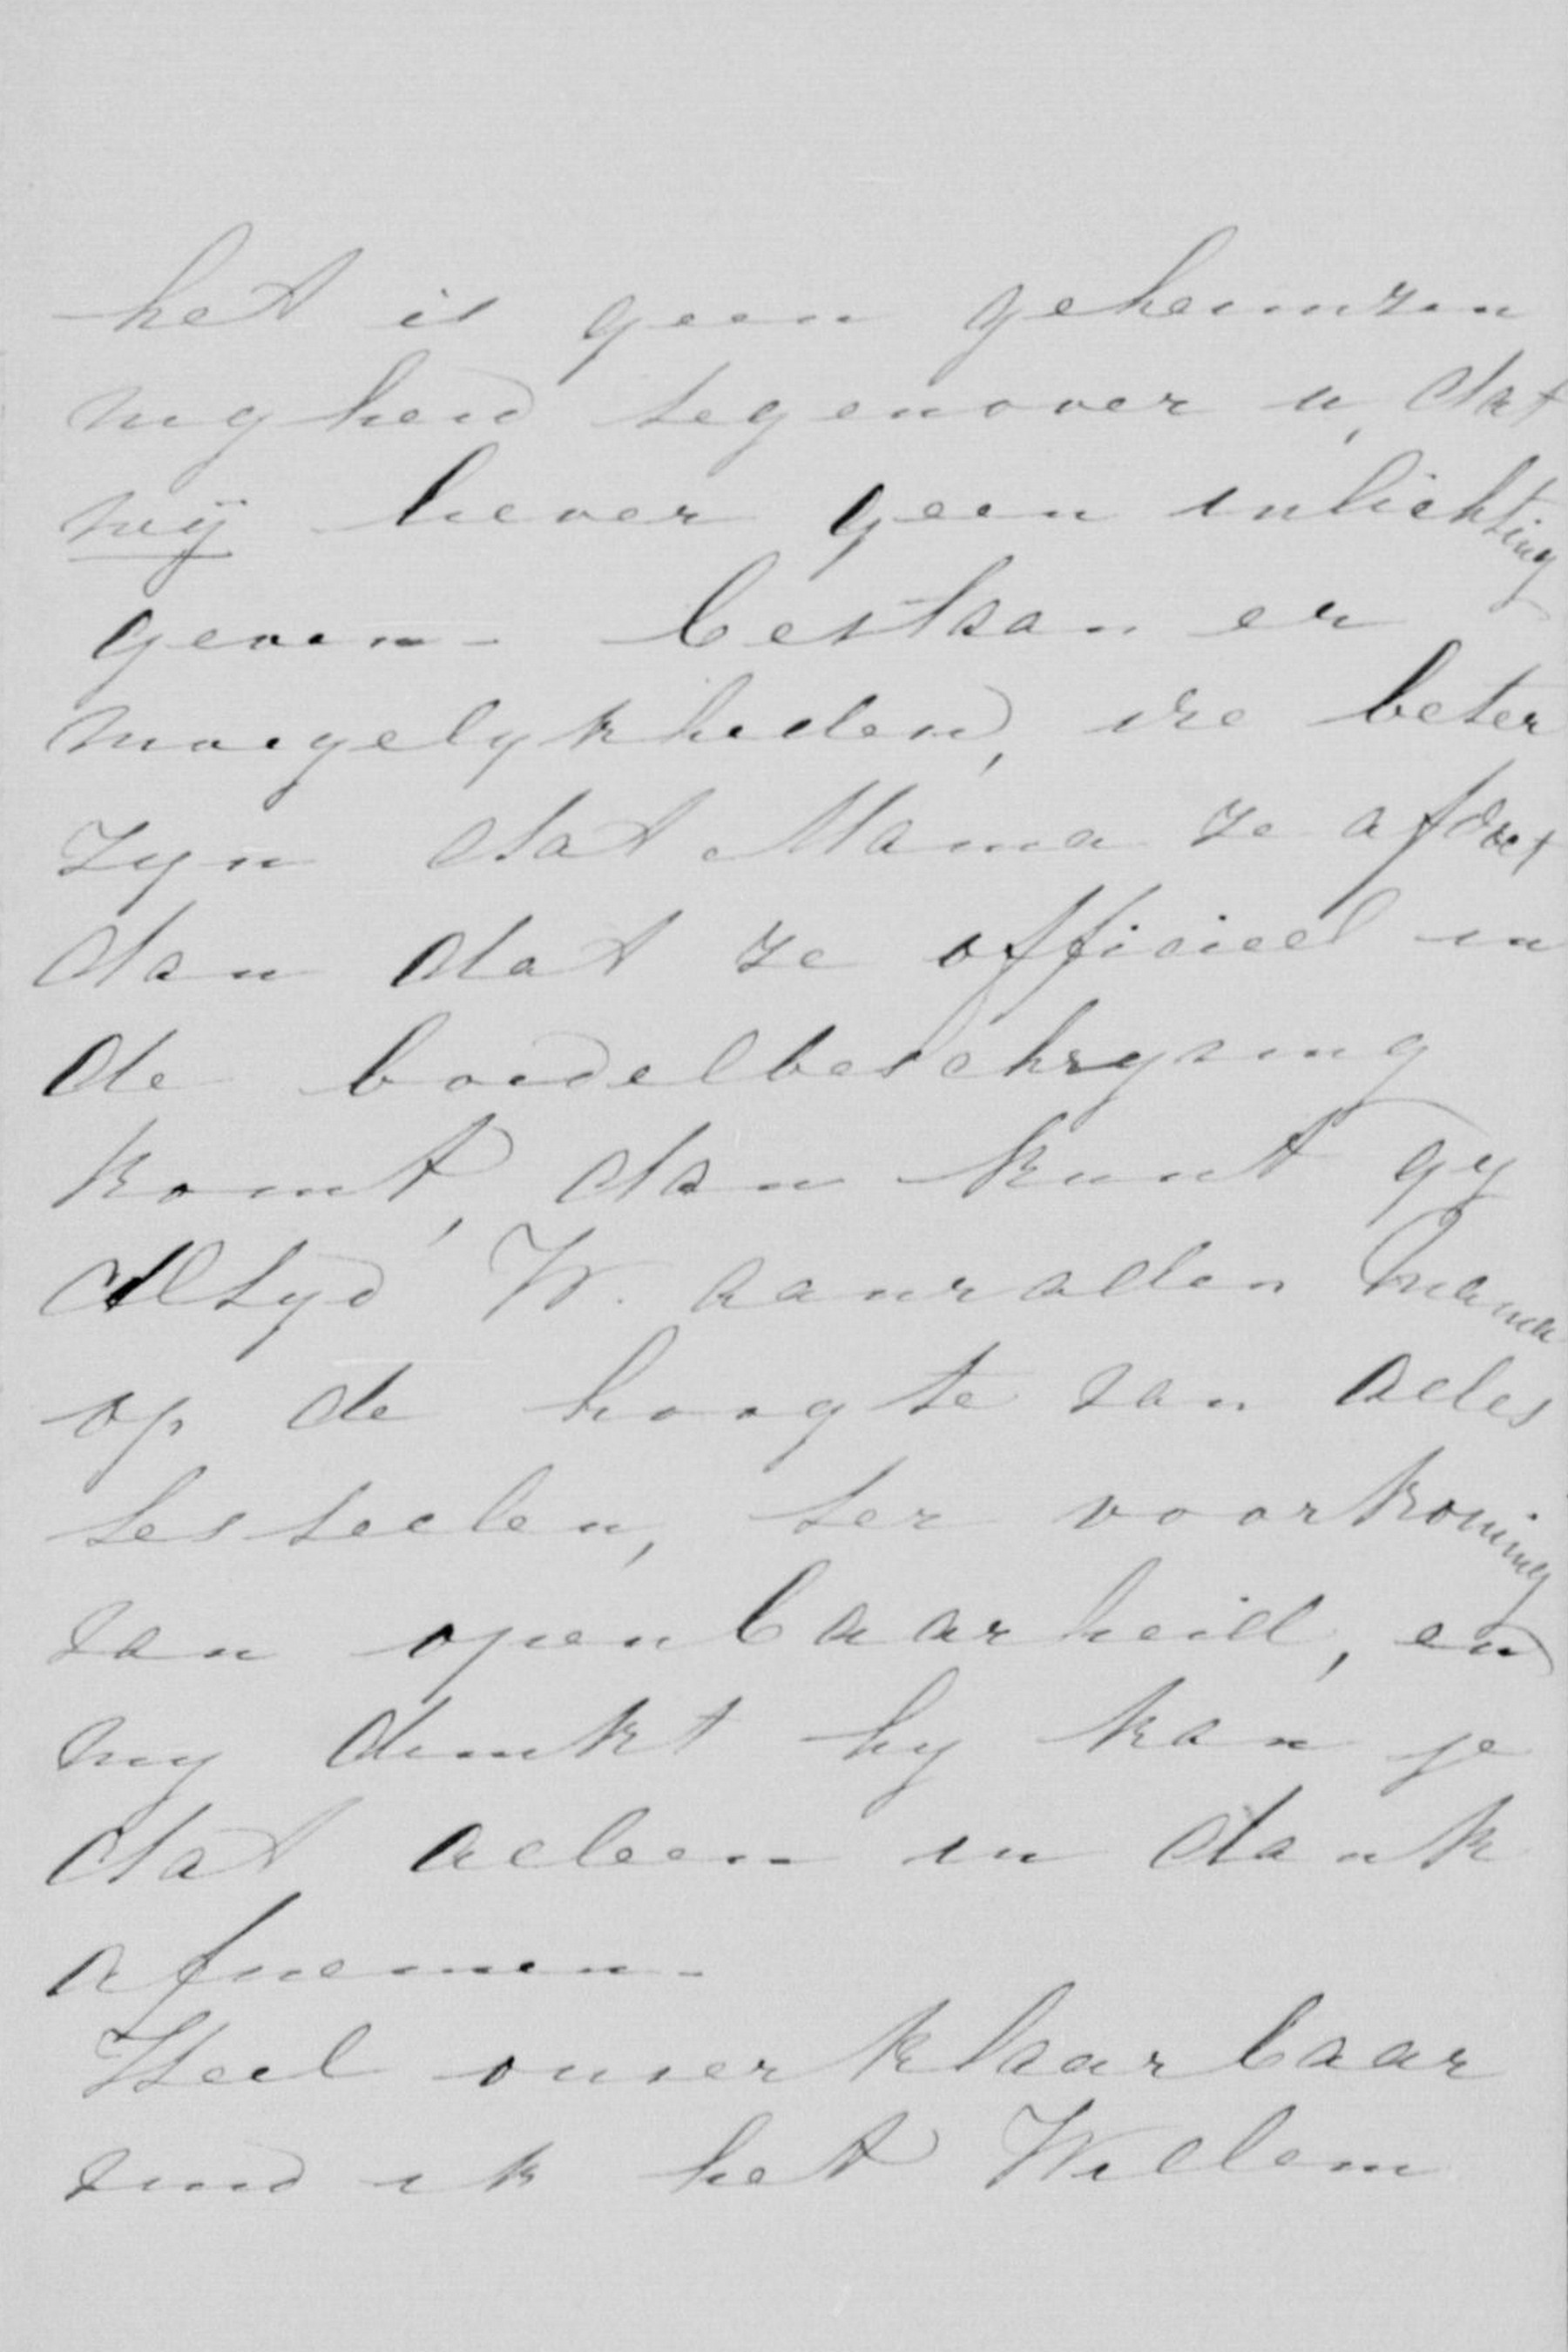 het is geen geheimzin
nigheid tegenover u, dat
wij liever geen inlichting
geven - bestaan er
moegelykheden, die beter
zyn dat Mama ze afdoet
dan dat ze officieel in
de boedelbeschryving
komt, dan kunt gy
altyd W. aanraden Mama
op de hoogte van alles
te stellen, ter voorkoming
van openbaarheid, en
my dunkt hy kan je
dat alleen in dank
afnemen -
Heel onverklaarbaar
vind ik het Willem